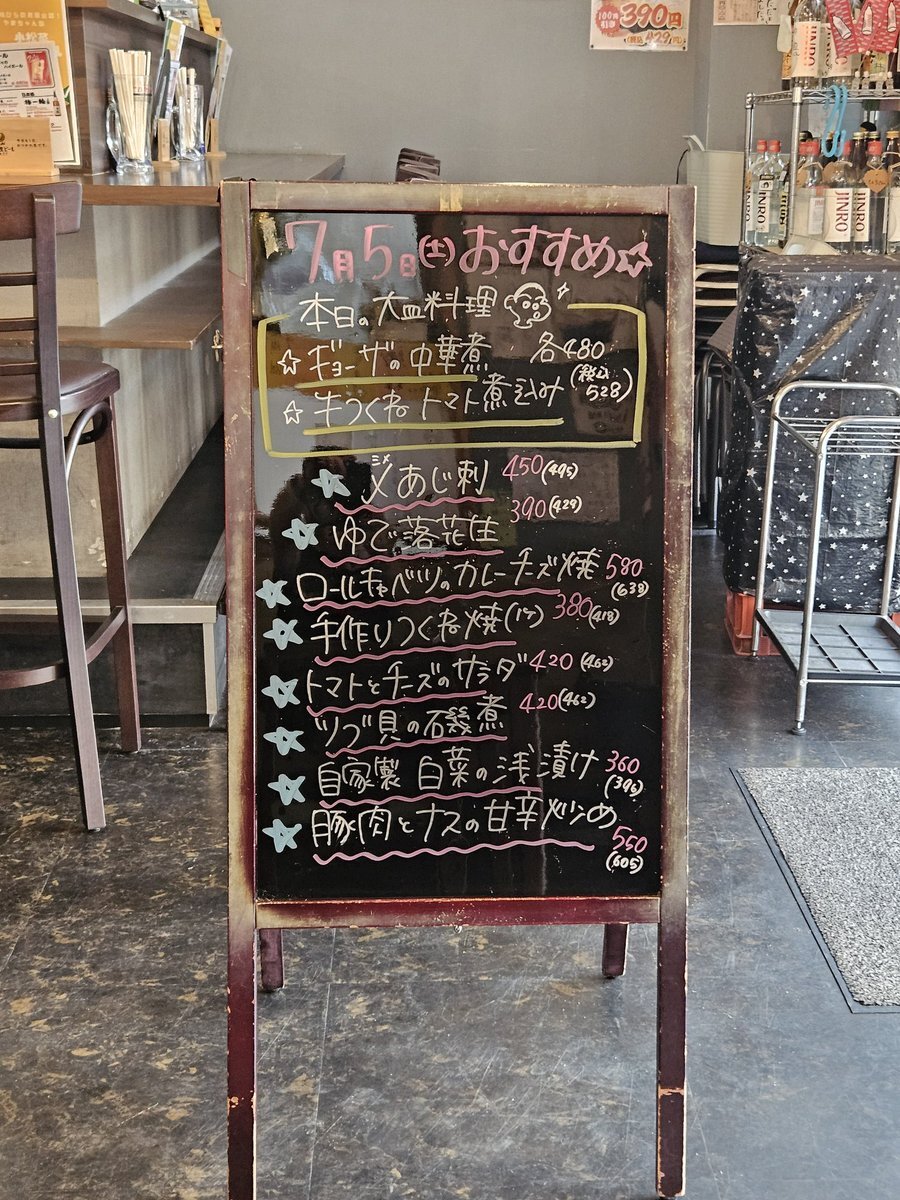 100円引き 390円
(税込 429円)
JINRO
JINRO
JINRO
7月5日(土)おすすめ☆
本日の大皿料理
☆ギョーザの中華煮 各480
(税込528)
☆牛つくねトマト煮込み
〆あじ刺 450(495)
ゆで落花生 390(429)
ロールキャベツのカレーチーズ焼 580
(638)
手作りつくね焼(1ケ) 380(418)
トマトとチーズのサラダ 420(462)
ツブ貝の磯煮 420(462)
自家製 白菜の浅漬け 360
(396)
豚肉とナスの甘辛炒め 550
(605)